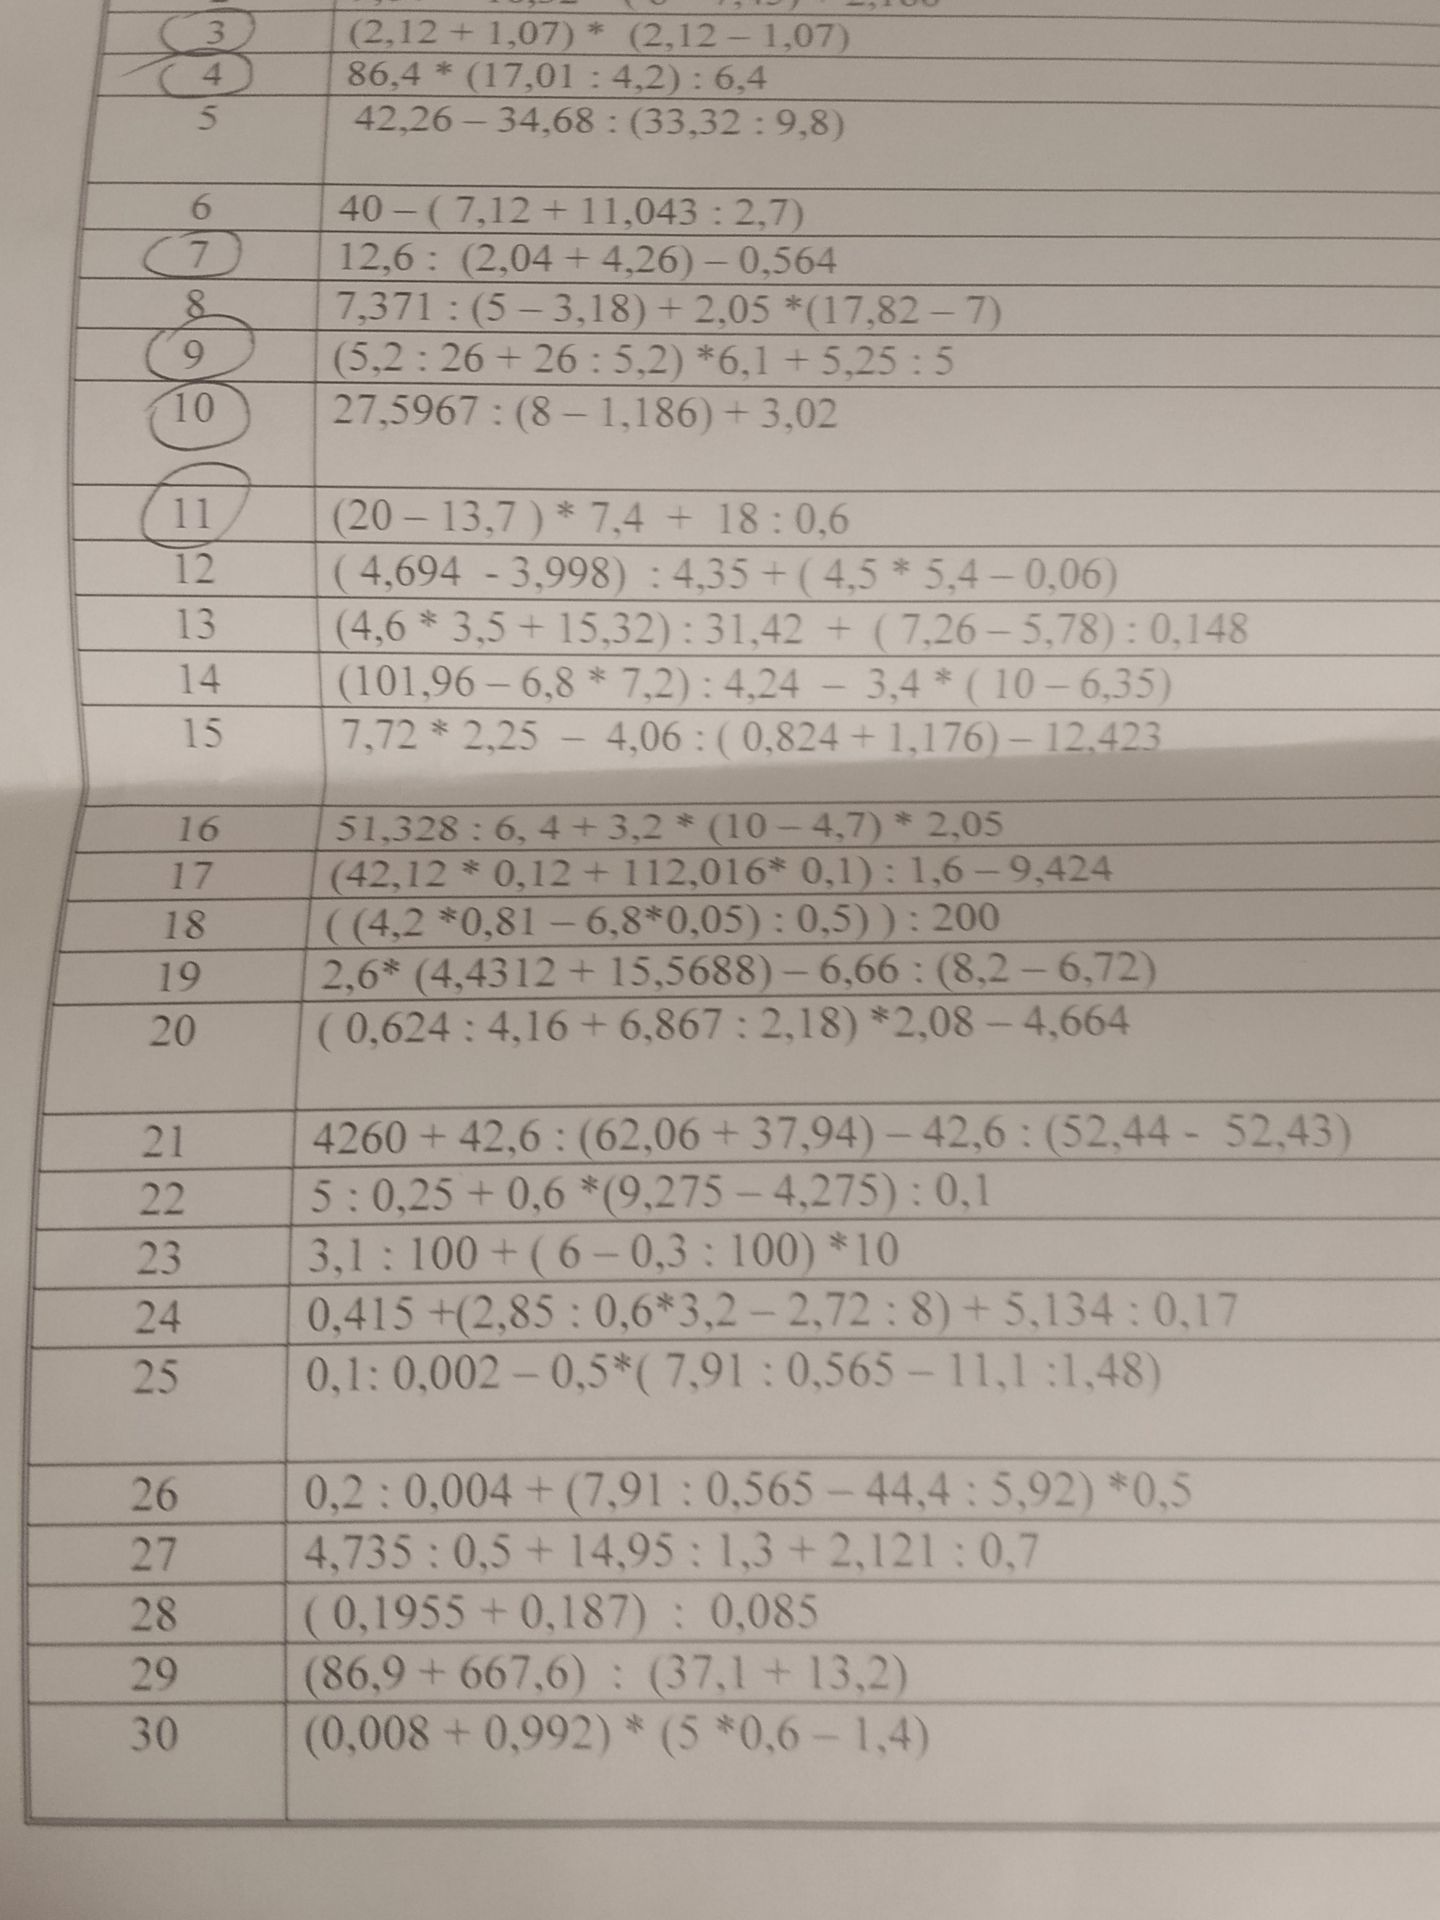 3 (2,12 + 1,07) * (2,12 – 1,07)
4 86,4 * (17,01 : 4,2) : 6,4
5 42,26 – 34,68 : (33,32 : 9,8)
6 40 – ( 7,12 + 11,043 : 2,7)
7 12,6 : (2,04 + 4,26) – 0,564
8 7,371 : (5 – 3,18) + 2,05 *(17,82 – 7)
9 (5,2 : 26 + 26 : 5,2) *6,1 + 5,25 : 5
10 27,5967 : (8 – 1,186) + 3,02
11 (20 – 13,7 ) * 7,4 + 18 : 0,6
12 ( 4,694 - 3,998) : 4,35 + ( 4,5 * 5,4 – 0,06)
13 (4,6 * 3,5 + 15,32) : 31,42 + ( 7,26 – 5,78) : 0,148
14 (101,96 – 6,8 * 7,2) : 4,24 – 3,4 * ( 10 – 6,35)
15 7,72 * 2,25 – 4,06 : ( 0,824 + 1,176) – 12,423
16 51,328 : 6, 4 + 3,2 * (10 – 4,7) * 2,05
17 (42,12 * 0,12 + 112,016* 0,1) : 1,6 – 9,424
18 ( (4,2 *0,81 – 6,8*0,05) : 0,5) ) : 200
19 2,6* (4,4312 + 15,5688) – 6,66 : (8,2 – 6,72)
20 ( 0,624 : 4,16 + 6,867 : 2,18) *2,08 – 4,664
21 4260 + 42,6 : (62,06 + 37,94) – 42,6 : (52,44 - 52,43)
22 5 : 0,25 + 0,6 *(9,275 – 4,275) : 0,1
23 3,1 : 100 + ( 6 – 0,3 : 100) *10
24 0,415 +(2,85 : 0,6*3,2 – 2,72 : 8) + 5,134 : 0,17
25 0,1: 0,002 – 0,5*( 7,91 : 0,565 – 11,1 :1,48)
26 0,2 : 0,004 + (7,91 : 0,565 – 44,4 : 5,92) *0,5
27 4,735 : 0,5 + 14,95 : 1,3 + 2,121 : 0,7
28 ( 0,1955 + 0,187) : 0,085
29 (86,9 + 667,6) : (37,1 + 13,2)
30 (0,008 + 0,992) * (5 *0,6 – 1,4)